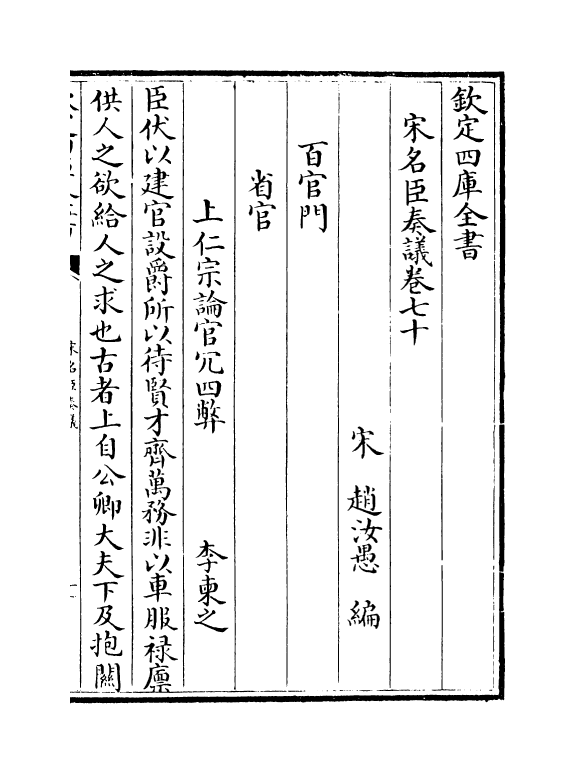 欽定四庫全書
宋名臣奏議卷七十
宋 趙汝愚 編
百官門
省官
上仁宗論官冗四弊 李柬之
臣伏以建官設爵所以待賢才齊萬務非以車服禄廪
供人之欲給人之求也古者上自公卿大夫下及抱關
宋名臣奏議